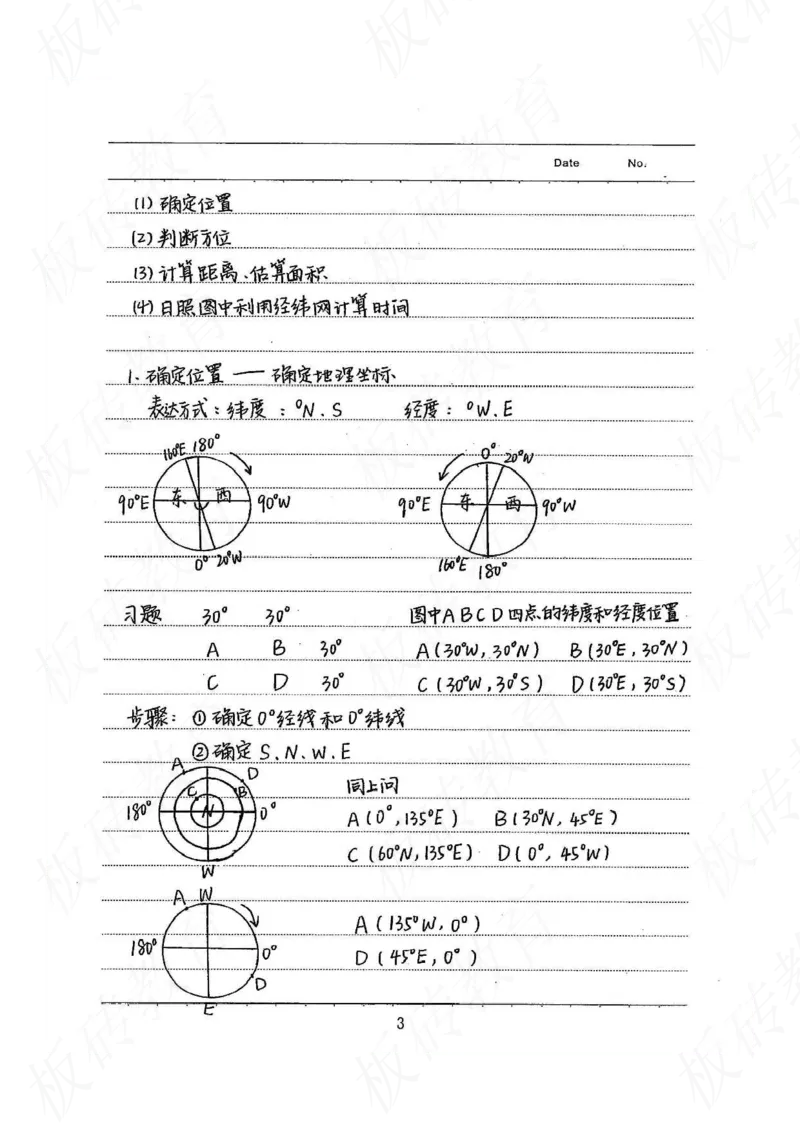 Date No.
(1) 确定位置
(2) 判断方位
(3) 计算距离、估算面积
(4) 日照图中利用经纬网计算时间
1. 确定位置 —— 确定地理坐标
表达方式：纬度：°N、S 经度：°W、E
160°E 180°
90°E 东 西 90°W
0° 20°W
0° 20°W
90°E 东 西 90°W
160°E 180°
习题 30° 30° 图中ABCD四点的纬度和经度位置
A B 30° A(30°W, 30°N) B(30°E, 30°N)
C D 30° C(30°W, 30°S) D(30°E, 30°S)
步骤：①确定0°经线和0°纬线
②确定S、N、W、E
A D
C B 同上问
180° N 0° A(0°, 135°E) B(30°N, 45°E)
C(60°N, 135°E) D(0°, 45°W)
W
A W
A(135°W, 0°)
180° 0° D(45°E, 0°)
D
E
3
板砖教育